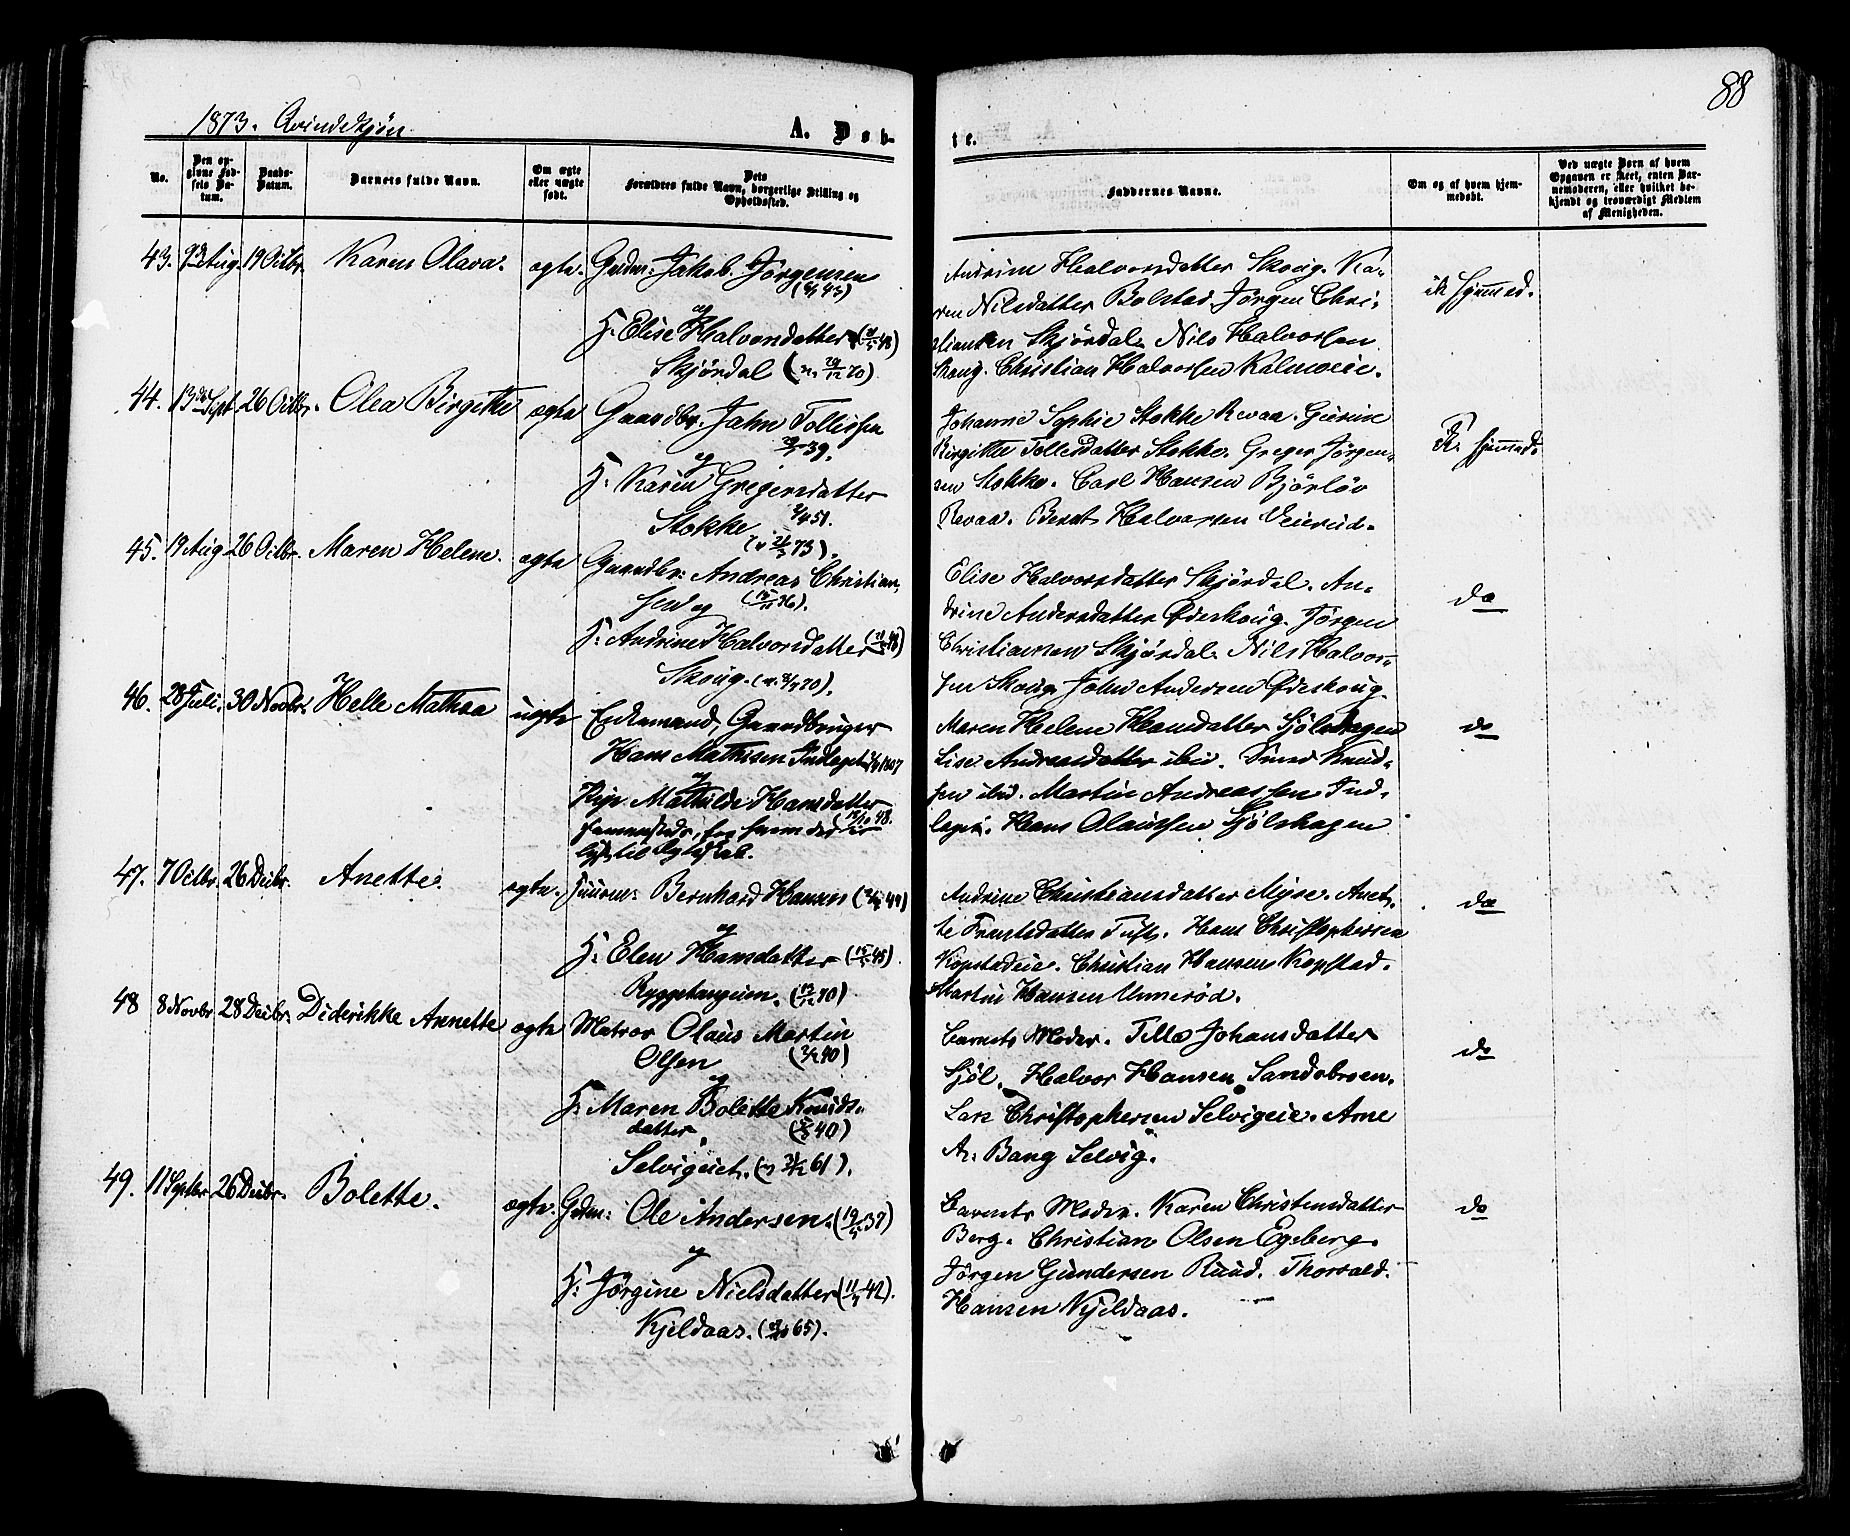 88
1873. Qvindekjøn. A. Døb-
te.
No.
Den op-
givne Fød-
sels Da-
tum.
Daabs-
Datum.
Barnets fulde Navn.
Om ægte
eller uægte
født.
Dets
Forældres fulde Navn, borgerlige Stilling og
Opholdssted.
Faddernes Navne.
Om og af hvem hjem-
medøbt.
Ved uægte Børn af hvem
Opgaven er skeet, enten Bar-
nemoderen, eller hvilket be-
kjendt og troværdigt Medlem
af Menigheden.
43. 9de Aug. 19 Octbr. Karen Olava. ægte. Gaardm: Jakob Jørgensen
og
H: Elise Halvorsdatter
Skjørdal
Andrine Halvorsdatter Skoug. Ka-
ren Nilsdatter Bolstad. Jørgen Chri-
stiansen Skjørdal. Nils Halvorsen
Skoug. Christian Halvorsen
ik hjemmed.
44. 13de Sept. 26 Octbr. Olea Birgitte ægte Gaardbr. Jahn Tollefsen
og
H: Karen Gregersdatter
Stokke
Johanne Sophie Stokke Revaa. Gurine
Birgitte Tollefsdatter Stokke. Greger Jørgen-
sen Stokke. Carl Hansen Bjørløv
Revaa. Bernt Halvorsen Veierud.
ik hjemmed.
45. 19 Aug 26 Octbr. Maren Helene. ægte Gaardbr: Andreas Christian-
sen og
H: Andrine Halvorsdatter
Skoug.
Elise Halvorsdatter Skjørdal. An-
drine Andersdatter Ødeskoug. Jørgen
Christiansen Skjørdal. Nils Halvor-
sen Skoug. John Andersen Ødeskoug.
do
46. 28 Juli. 30 Novbr. Helle Mathea uægte Enkemand, Gaardbruger
Hans Mathisen Indlaget
og
Pige Mathilde Hansdatter
sammesteds, for hvem der er
lyst til Ægteskab.
Maren Helene Hansdatter Sjølshagen
Lise Andreasdatter ibid. Knud-
sen ibid. Martin Andreassen Ind-
laget. Hans Olaussen Sjølshagen
do
47. 7 Octbr. 26 Decbr. Anette. ægte. Bernhard Hansen
og
H: Elen Hansdatter
Ryggetangeien.
Andrine Christiansdatter Myre. Anet-
te Frantsdatter Tufte. Hans Christophersen
Kopstadeie. Christian Hansen Kopstad.
Martin Hansen Unnerød.
do
48 8 Novbr 28 Decbr. Diderikke Annette ægte Matros Olaus Martin
Olsen
og
H: Maren Bolette Knuds-
datter
Selvigeiet.
Barnets Moder. Johansdatter
Sjøl. Halvor Hansen Sandebroen.
Lars Christophersen Selvigeie. Arne
A: Bang Selvig.
do
49. 11 Septbr 26 Decbr. Bolette. ægte. Gdm: Ole Andersen.
og
H: Jørgine Nielsdatter
Kjeldaas.
Barnets Moder. Karen Christensdatter
Berg. Christian Olsen Egeberg.
Jørgen Gundersen Ruud. Thorvald
Hansen Kjeldaas.
do